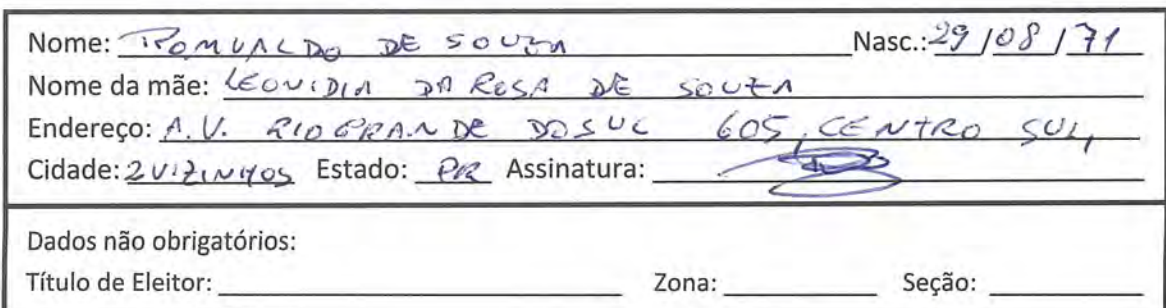 Nome: ROMUALDO DE SOUZA Nasc.: 29/08/71
Nome da mãe: LEONIDIA DA ROSA DE SOUZA
Endereço: A.V. RIO GRANDE DO SUL 605, CENTRO SUL,
Cidade: 2 VIZINHOS Estado: PR Assinatura:
Dados não obrigatórios:
Título de Eleitor: Zona: Seção: